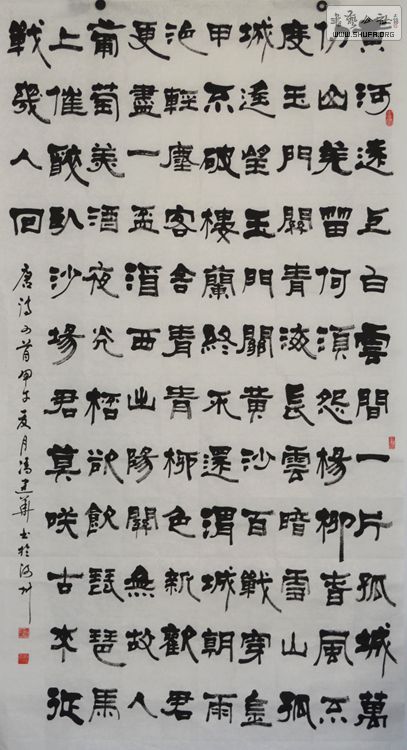 黃河遠上白雲間一片孤城萬
仞山羌笛何須怨楊柳春風不
度玉門關青海長雲暗雪山孤
城遙望玉門關黃沙百戰穿金
甲不破樓蘭終不還渭城朝雨
浥輕塵客舍青青柳色新勸君
更盡一盃酒西出陽關無故人
葡萄美酒夜光桮欲飲琵琶馬
上催醉臥沙場君莫咲古來征
戰幾人回
唐詩四首甲午夏月馮建華書於
書藝公社
WWW.SHUFA.ORG